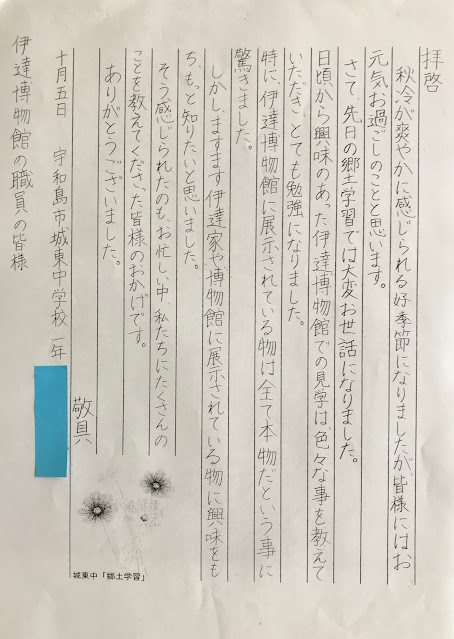 拝啓
秋冷が爽やかに感じられる好季節になりましたが、皆様にはお
元気お過ごしのことと思います。
さて、先日の郷土学習では大変お世話になりました。
日頃から興味のあった伊達博物館での見学は、色々な事を教えて
いただき、とても勉強になりました。
特に、伊達博物館に展示されている物は全て本物だという事に
驚きました。
しかし、ますます伊達家や博物館に展示されている物に興味をも
ち、もっと知りたいと思いました。
そう感じられたのも、お忙しい中、私たちにたくさんの
ことを教えてくださった皆様のおかげです。
ありがとうございました。
敬具
十月五日 宇和島市城東中学校 一年
伊達博物館の職員の皆様
城東中「郷土学習」